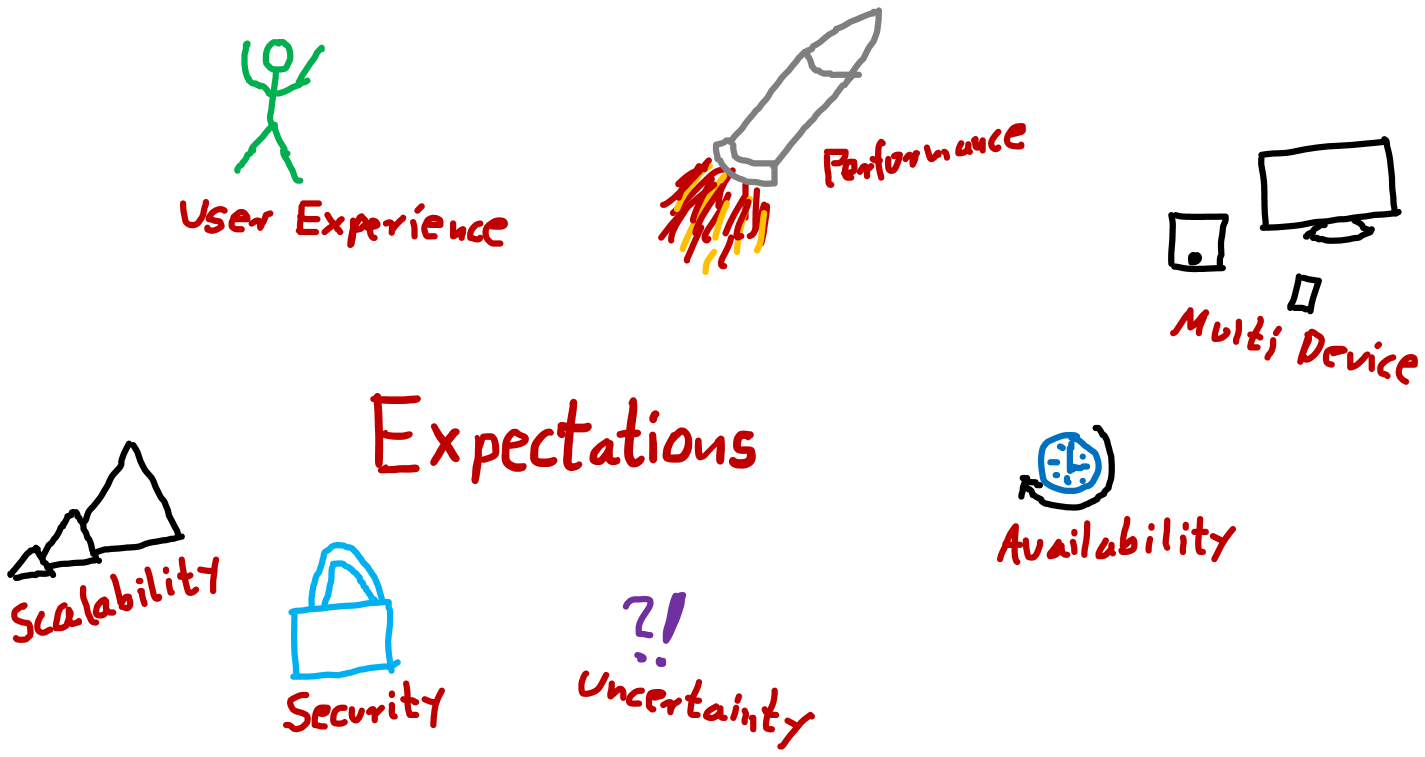 User Experience
Performance
Multi Device
Expectations
Availability
Scalability
Security
?!
Uncertainty